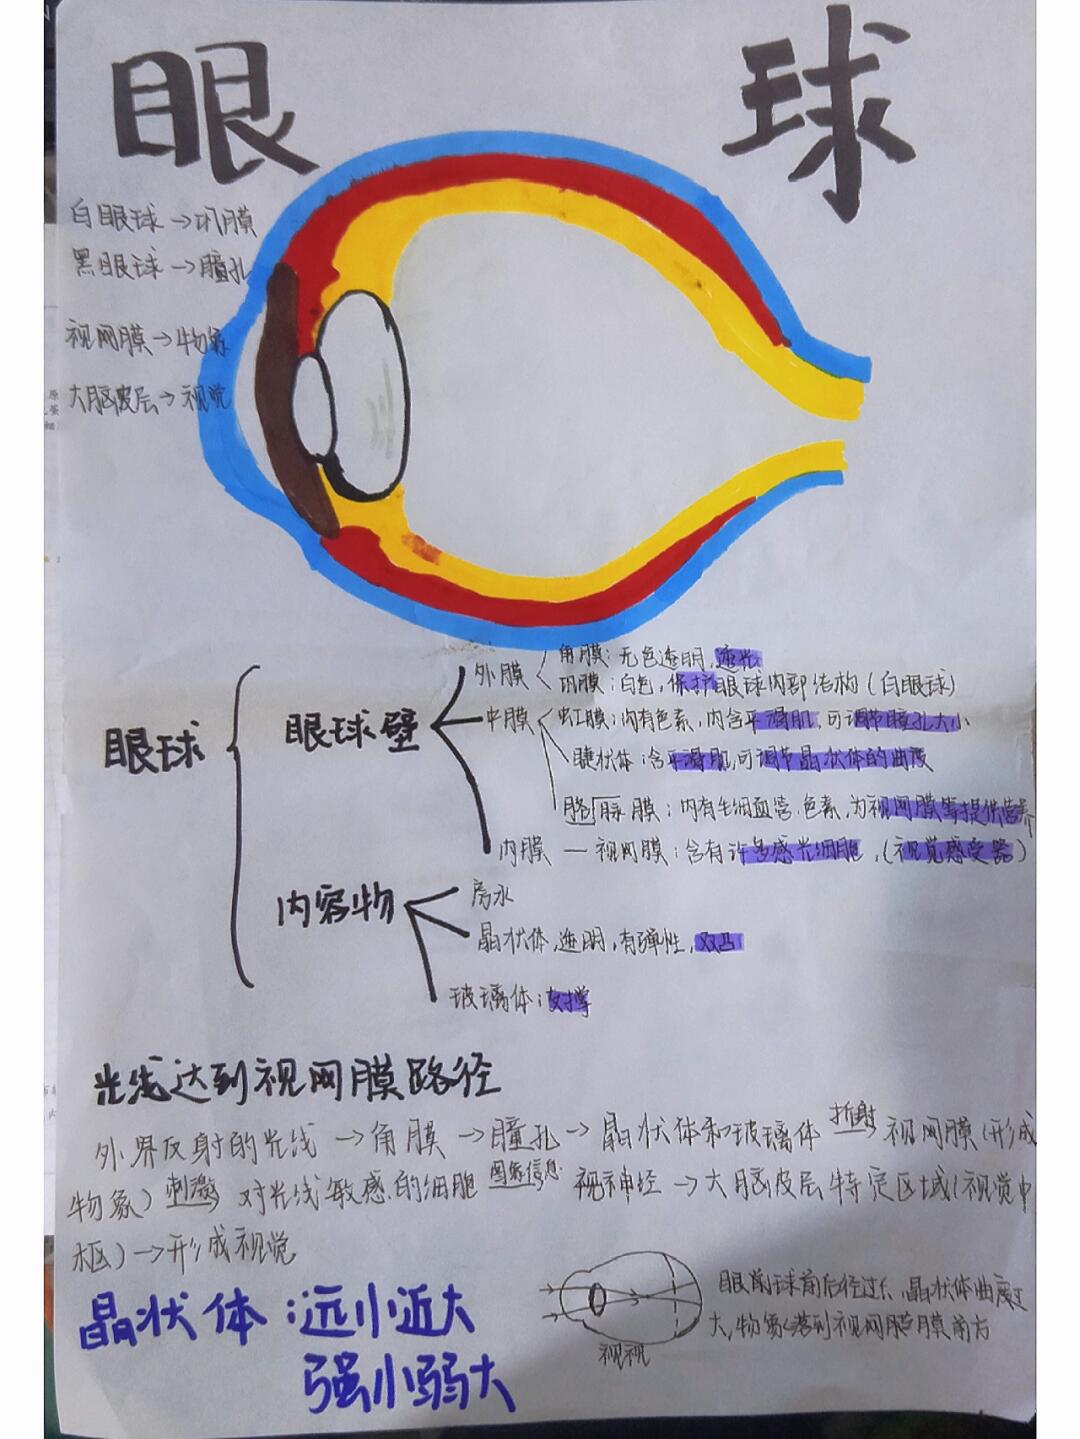 眼 球
白眼球→巩膜
黑眼球→瞳孔
视网膜→物象
大脑皮层→视觉
眼球
眼球壁
外膜
角膜：无色透明，透光
巩膜：白色，保护眼球内部结构（白眼球）
中膜
虹膜：内有色素，内含平滑肌，可调节瞳孔大小
睫状体：含平滑肌，可调节晶状体的曲度
脉络膜：内有毛细血管，色素，为视网膜等提供营养
内膜 — 视网膜：含有许多感光细胞，（视觉感受器）
内容物
房水
晶状体，透明，有弹性，双凸
玻璃体：支撑
光线达到视网膜路径
外界反射的光线→角膜→瞳孔→晶状体和玻璃体 折射→ 视网膜（形成
物象）刺激→ 对光线敏感的细胞 图象信息→ 视神经→大脑皮层特定区域（视觉中
枢）→形成视觉
晶状体：远小近大
强小弱大
眼球前后径过长，晶状体曲度过
大，物象落到视网膜前方